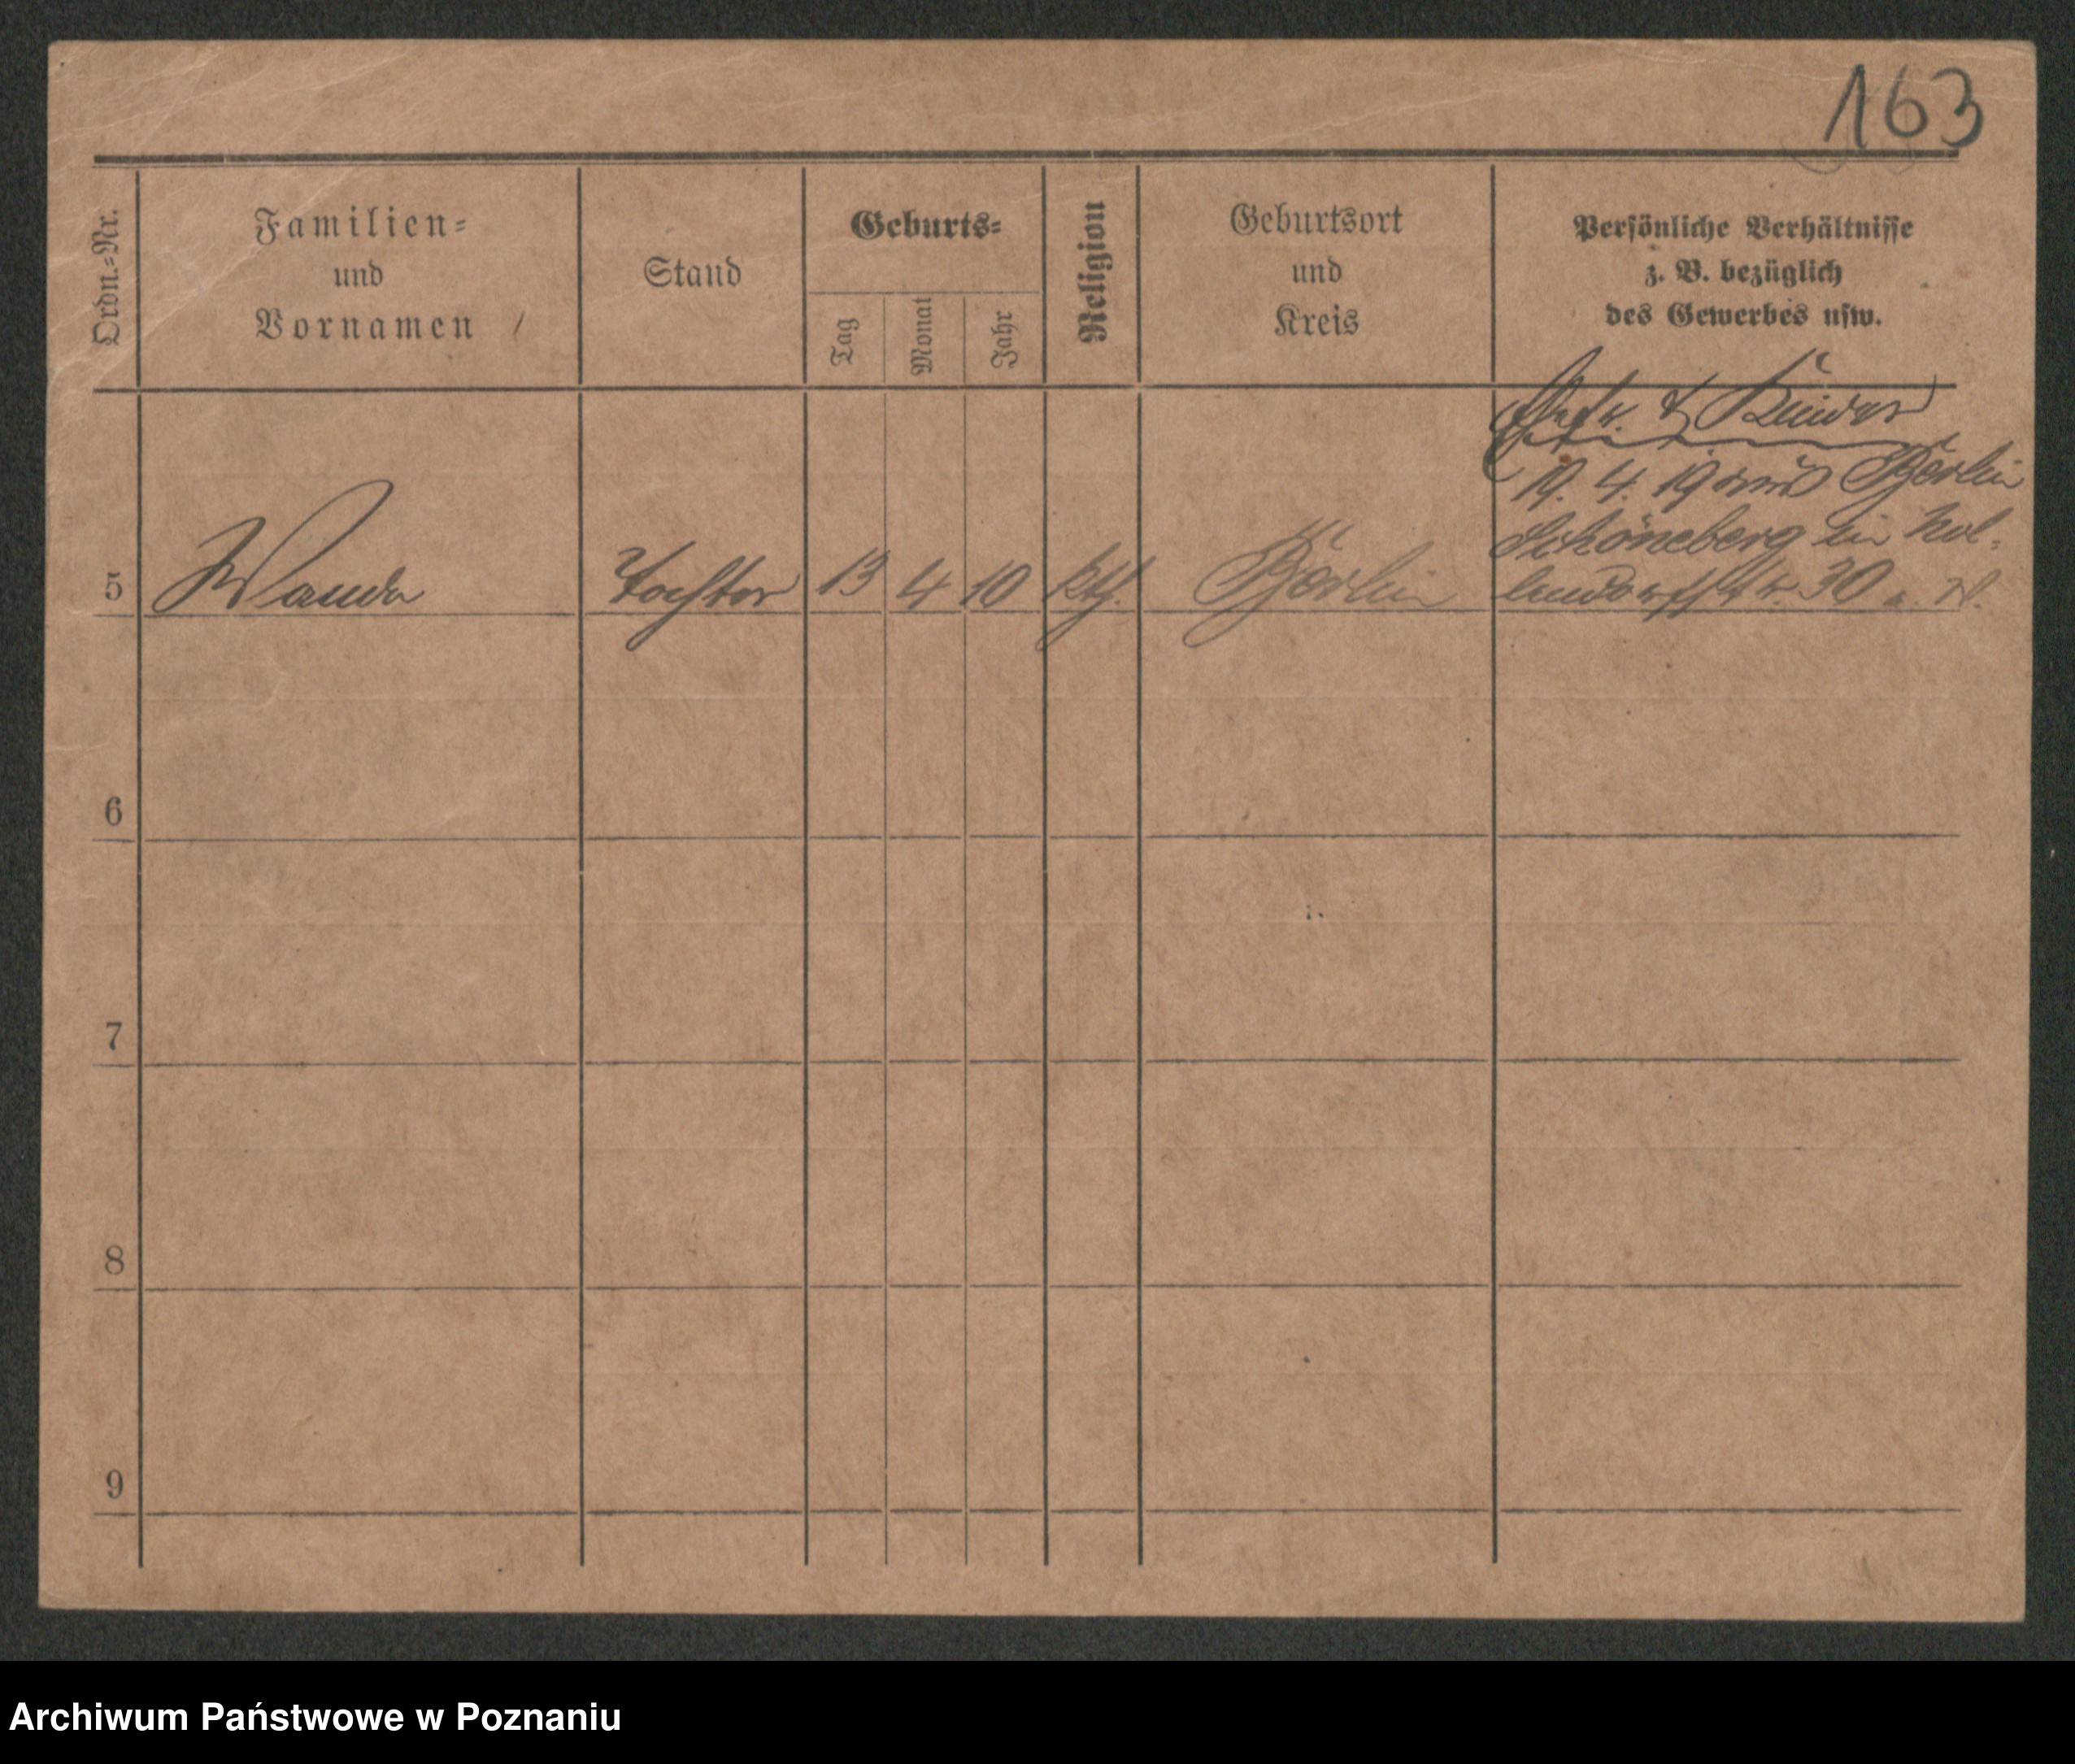 163
Ordn.-Nr.
Familien-
und
Vornamen
Stand
Geburts-
Tag
Monat
Jahr
Religion
Geburtsort
und
Kreis
Persönliche Verhältnisse
z. B. bezüglich
des Gewerbes usw.
Ehefr. & Kinder
19. 4. 19 von Berlin
5 Wanda Tochter 13 4 10 kth. Berlin
Schöneberg in Nol-
lendorfstr. 30
6
7
8
9
Archiwum Państwowe w Poznaniu